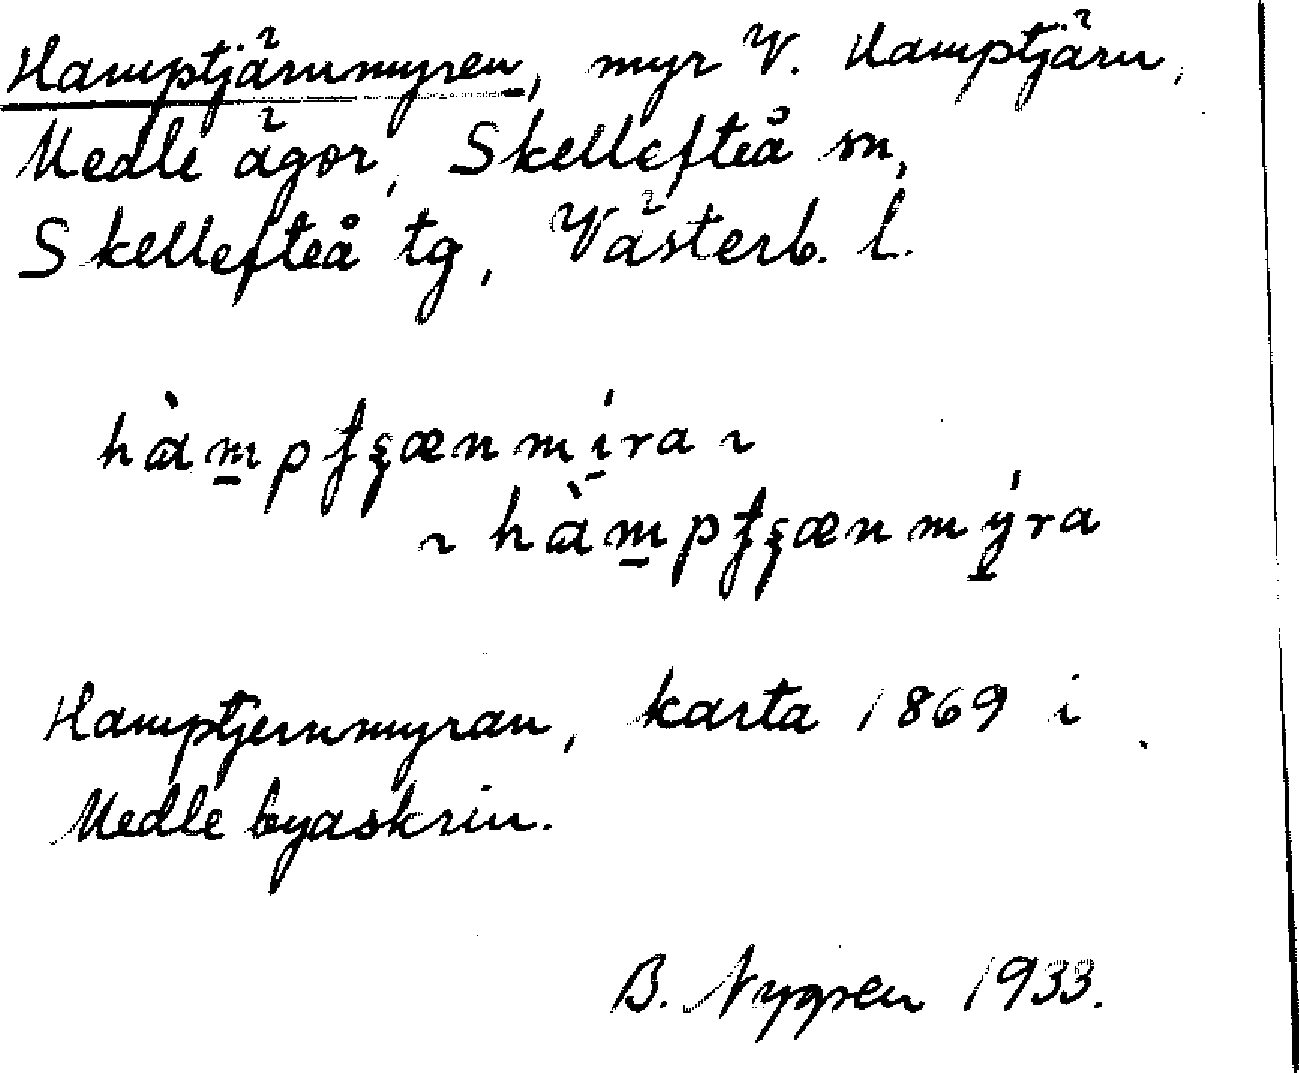 Hamptjärnmyren, myr V. Hamptjärn,
Medle ägor, Skellefteå sn,
Skellefteå tg, Västerb. l.
hàm̲pʈʂænmí̲ra ~
~ hàm̲pʈʂænmý̲ra
Hamptjernmyran, karta 1869 i
Medle byaskrin.
B. Nygren 1933.